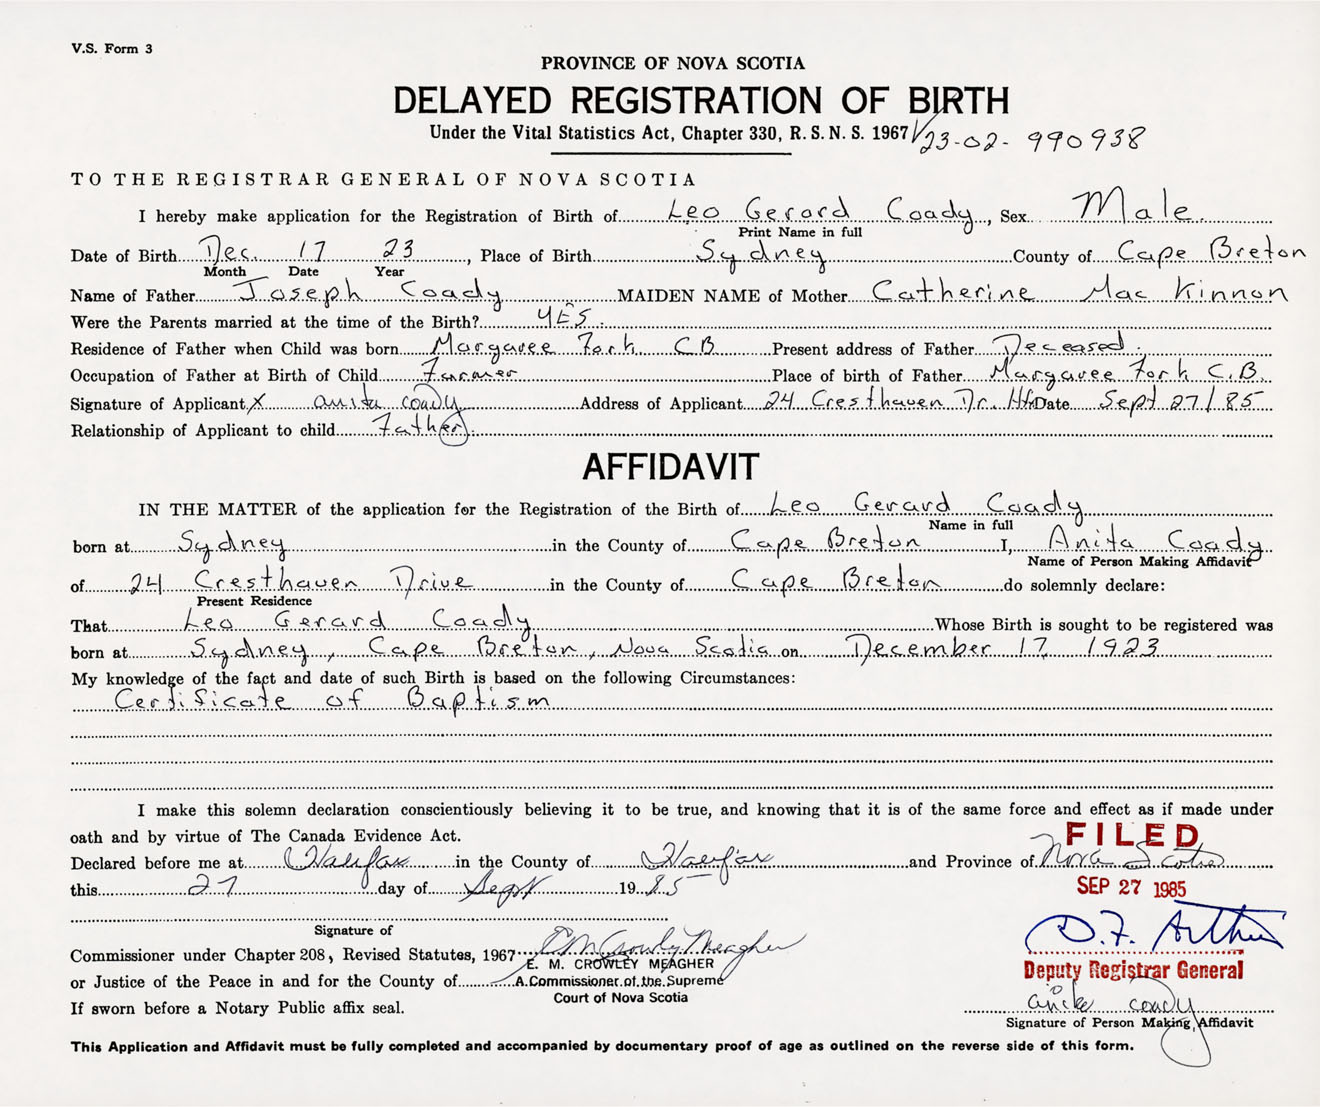 V.S. Form 3
PROVINCE OF NOVA SCOTIA
DELAYED REGISTRATION OF BIRTH
Under the Vital Statistics Act, Chapter 330, R. S. N. S. 1967 23-02-990938
TO THE REGISTRAR GENERAL OF NOVA SCOTIA
I hereby make application for the Registration of Birth of Leo Gerard Coady, Sex Male
Print Name in full
Date of Birth Dec. 17 23, Place of Birth Sydney County of Cape Breton
Month Date Year
Name of Father Joseph Coady MAIDEN NAME of Mother Catherine Mac Kinnon
Were the Parents married at the time of the Birth? YES.
Residence of Father when Child was born Margaree Fork CB Present address of Father Deceased.
Occupation of Father at Birth of Child Farmer Place of birth of Father Margaree Fork C.B.
Signature of Applicant X anita coady Address of Applicant 24 Cresthaven Dr. Hfx Date Sept 27/85
Relationship of Applicant to child Father.
AFFIDAVIT
IN THE MATTER of the application for the Registration of the Birth of Leo Gerard Coady
Name in full
born at Sydney in the County of Cape Breton I, Anita Coady
Name of Person Making Affidavit
of 24 Cresthaven Drive in the County of Cape Breton do solemnly declare:
Present Residence
That Leo Gerard Coady Whose Birth is sought to be registered was
born at Sydney, Cape Breton, Nova Scotia on December 17, 1923
My knowledge of the fact and date of such Birth is based on the following Circumstances:
Certificate of Baptism
I make this solemn declaration conscientiously believing it to be true, and knowing that it is of the same force and effect as if made under
oath and by virtue of The Canada Evidence Act.
FILED
Declared before me at Halifax in the County of Halifax and Province of Nova Scotia
this 27 day of Sept 19 85
SEP 27 1985
Signature of
D.F. Arthur
Commissioner under Chapter 208, Revised Statutes, 1967 E M Crowley Meagher
E. M. CROWLEY MEAGHER
Deputy Registrar General
or Justice of the Peace in and for the County of A Commissioner of the Supreme
Court of Nova Scotia
anita coady
If sworn before a Notary Public affix seal.
Signature of Person Making Affidavit
This Application and Affidavit must be fully completed and accompanied by documentary proof of age as outlined on the reverse side of this form.